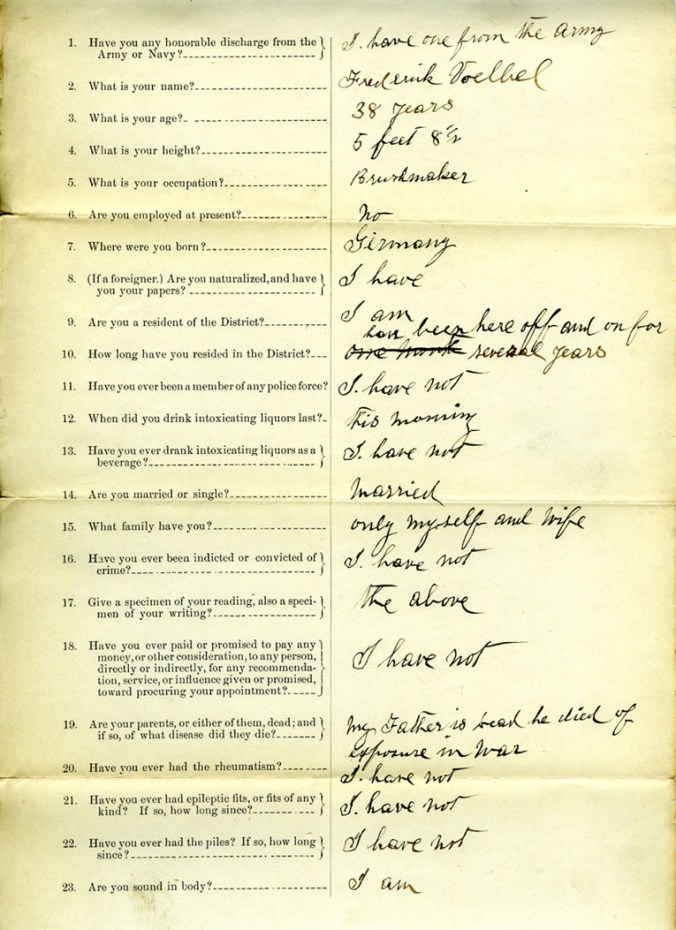 1. Have you any honorable discharge from the } I. have one from the Army
Army or Navy?
2. What is your name? Frederik Voelbel
3. What is your age? 38 years
4. What is your height? 5 feet 8½
5. What is your occupation? Brushmaker
6. Are you employed at present? no
7. Where were you born? Germany
8. (If a foreigner.) Are you naturalized, and have } I have
you your papers?
9. Are you a resident of the District? I am
have been here off and on for
10. How long have you resided in the District? one month several years
11. Have you ever been a member of any police force? I. have not
12. When did you drink intoxicating liquors last? this morning
13. Have you ever drank intoxicating liquors as a } I. have not
beverage?
14. Are you married or single? Married
15. What family have you? only my self and Wife
16. Have you ever been indicted or convicted of } I. have not
crime?
17. Give a specimen of your reading, also a speci- } the above
men of your writing?
18. Have you ever paid or promised to pay any }
money, or other consideration, to any person,
directly or indirectly, for any recommenda- I have not
tion, service, or influence given or promised,
toward procuring your appointment?
19. Are your parents, or either of them, dead; and } my Father is dead he died of
if so, of what disease did they die? exposure in War
20. Have you ever had the rheumatism? I. have not
21. Have you ever had epileptic fits, or fits of any } I. have not
kind? If so, how long since?
22. Have you ever had the piles? If so, how long } I have not
since?
23. Are you sound in body? I am